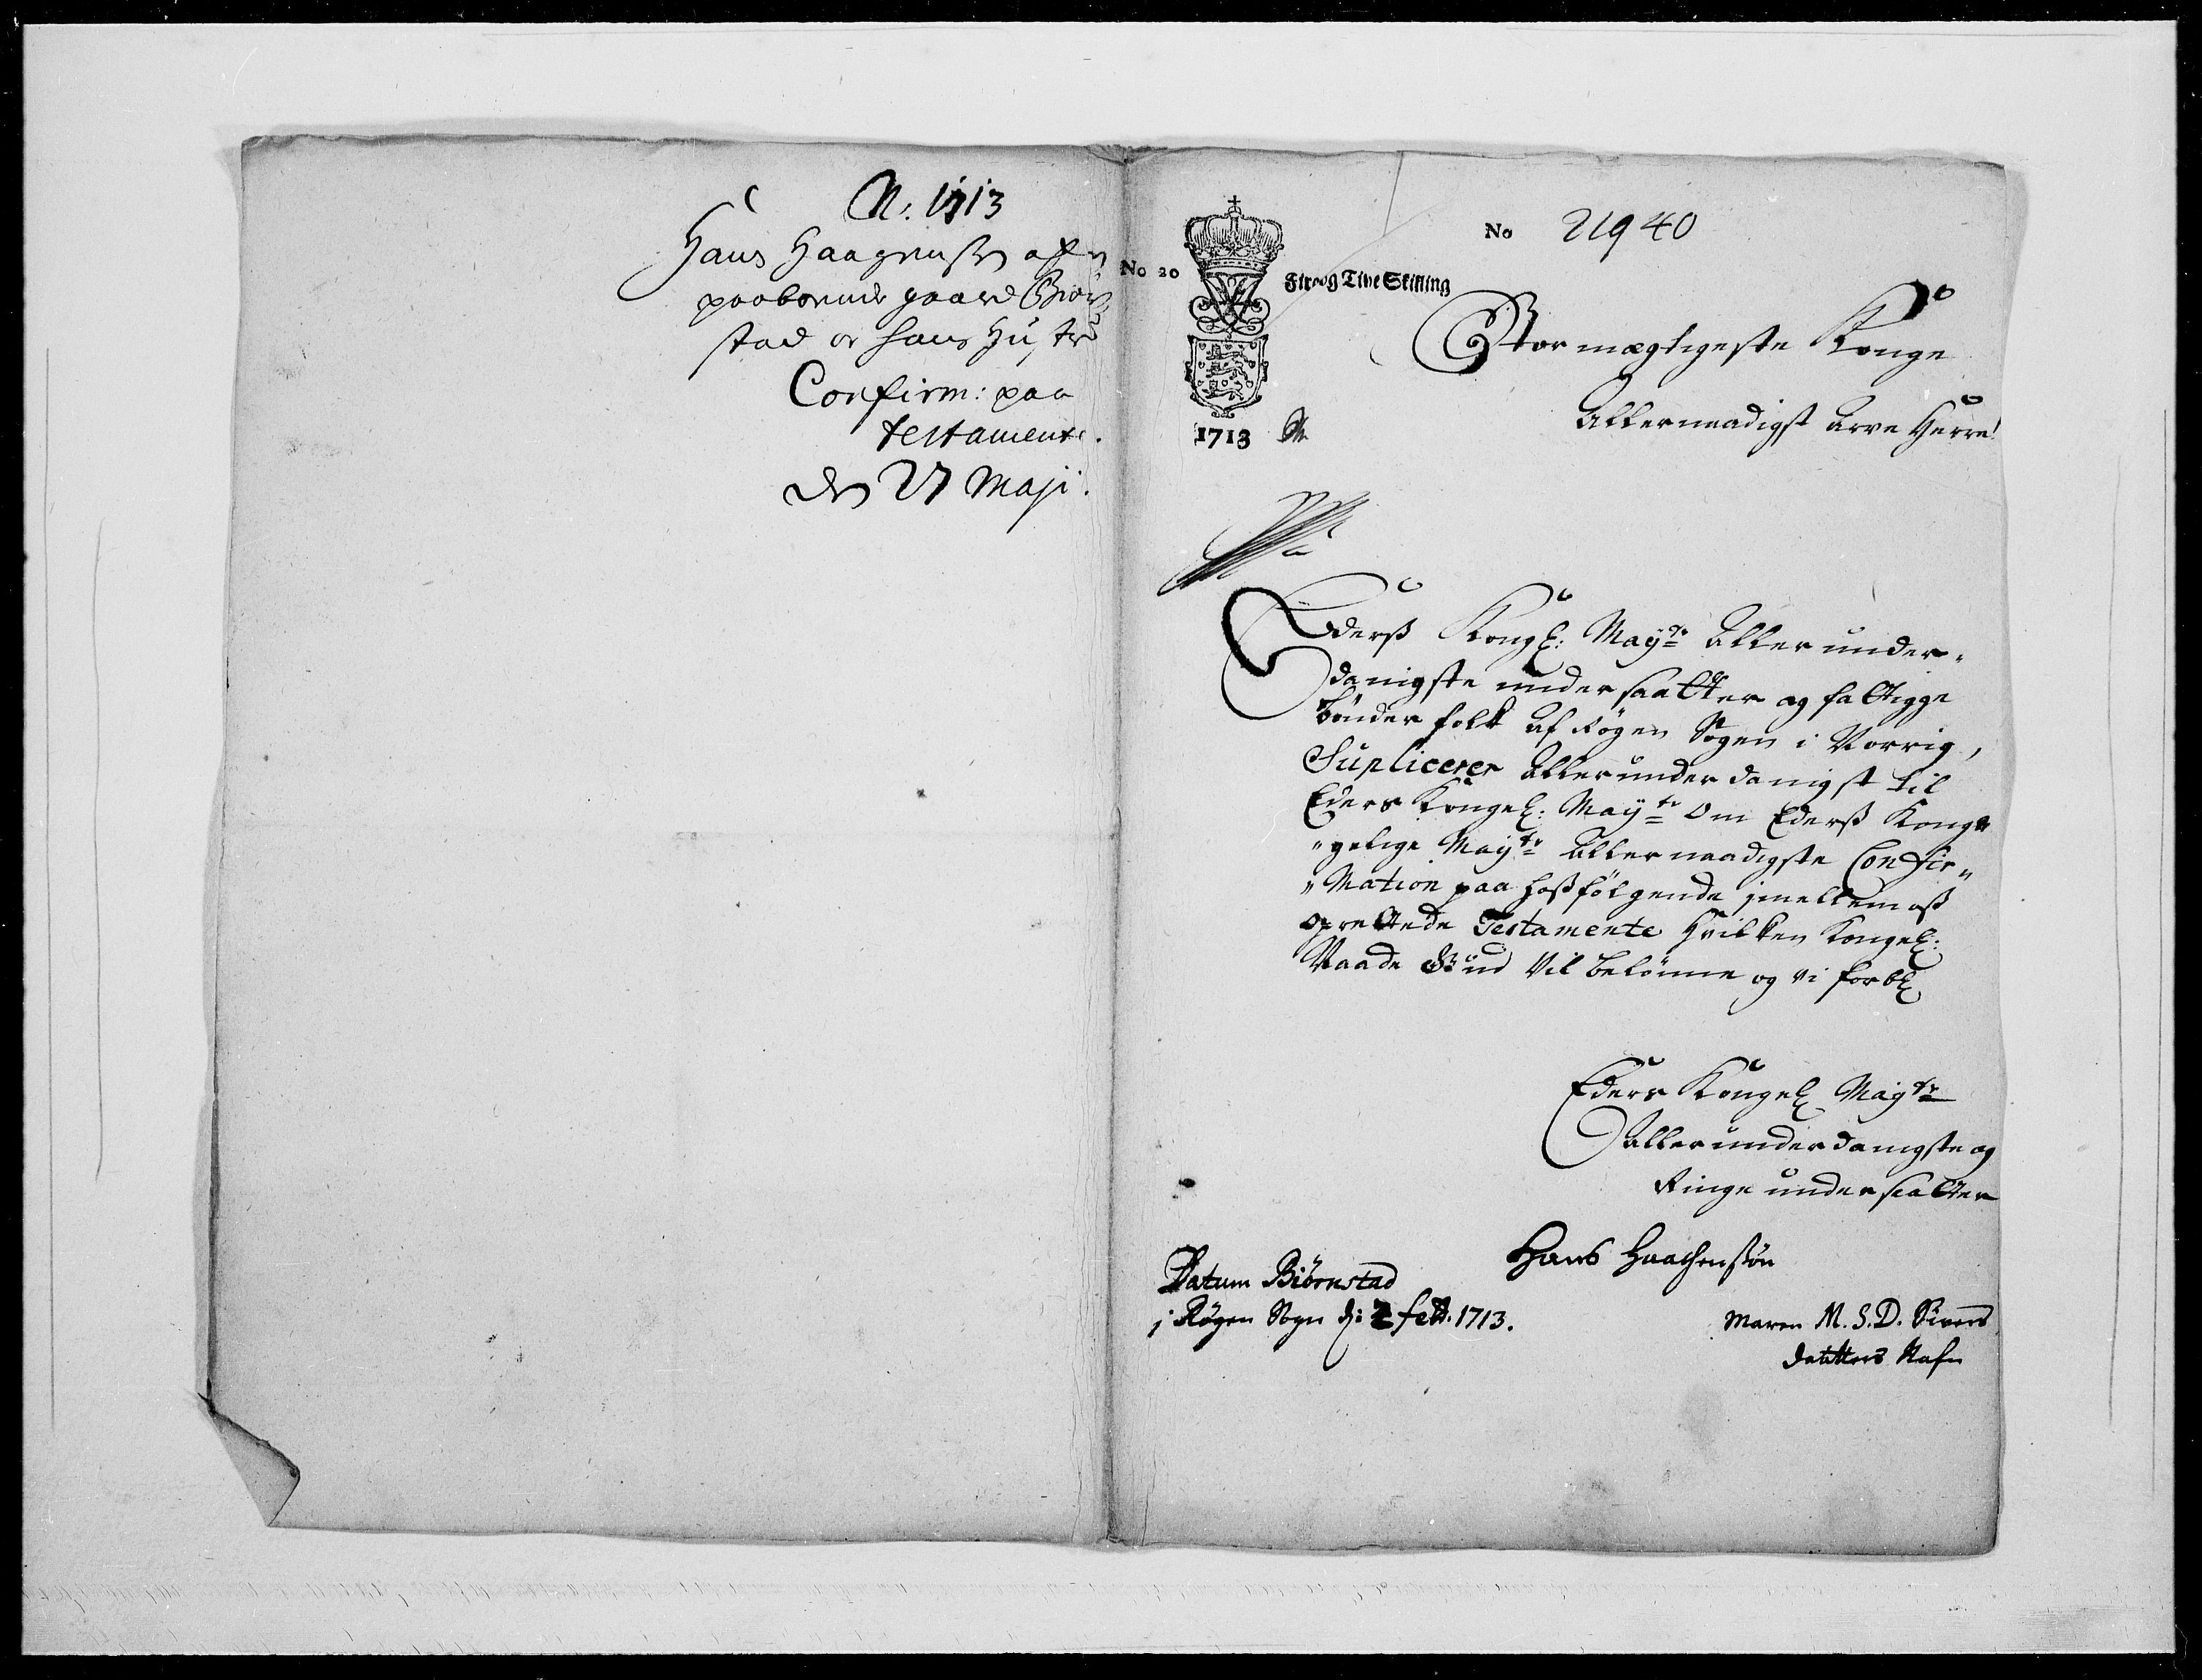 A: 1713
Hans Haagensen af
paaboende gaard Biørn
stad og hans Hustr
Confirm: paa
testamente.
den 27 Maji.
No 20
Fire og Tive Skilling
No 21940
1713
Stormægtigeste Konge
Allernaadigst Arve Herre!
Ederß Kongl: Mayts Allerunder-
danigste undersaatter og fattigge
bønder folk af Røgen Sogen i Norrig,
Suplicerer Allerunderdanigst til
Eders Kongel: Mayts Om Ederß Kong-
"gelige Mayts Allernaadigste Confir"
"Mation paa hoßfølgende imellem oß
oprettede Testamente Hvilken Kongel:
Naade Gud Vil belønne og vi forbl
Eders Kongel Mayts
Allerunderdanigste og
Ringe undersaatter
Hans Haachensøn
Datum Biørnstad
i Røgen Sogn d: 2 feb. 1713.
Maren M.S.D. Sivers
datters Nafn